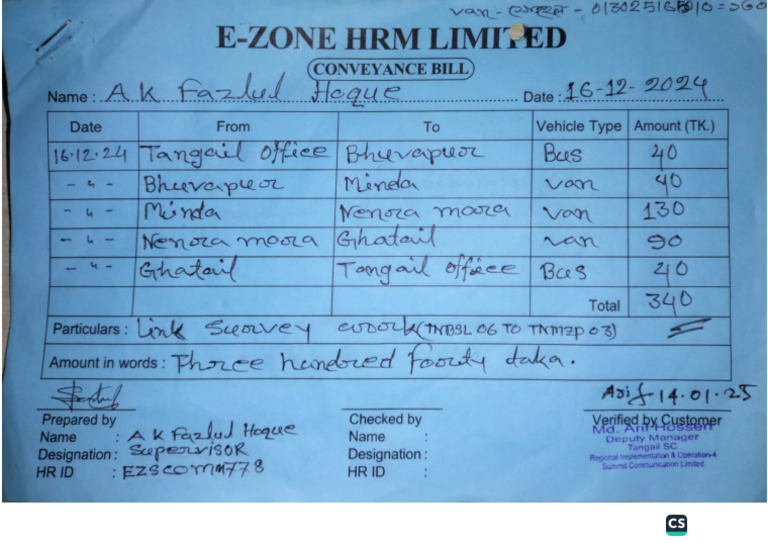 van - 01302516510 = 260
E-ZONE HRM LIMITED
CONVEYANCE BILL
Name : A K Fazlul Hoque Date : 16-12-2024
Date From To Vehicle Type Amount (TK.)
16.12.24 Tangail office Bhuvapur Bus 40
- 〃 - Bhuvapur Minda van 40
- 〃 - Minda Nenora moora van 130
- 〃 - Nenora moora Ghatail van 90
- 〃 - Ghatail Tangail office Bus 40
Total 340
Particulars : Link Survey work (TNBSL 06 TO TNMZP 03)
Amount in words : Three hundred fourty taka.
Arif 14.01.25
Prepared by Checked by Verified by Customer
Name : A K Fazlul Hoque Name : Md. Arif Hossen
Designation : Supervisor Designation : Deputy Manager
Tangail SC
HR ID : HR ID :
Regional Implementation & Operation-4
Summit Communication Limited
CS